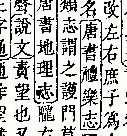 改左右庶子爲
名唐書禮樂志
類志謂之護門
唐書地理志隴
聲說文責望也又